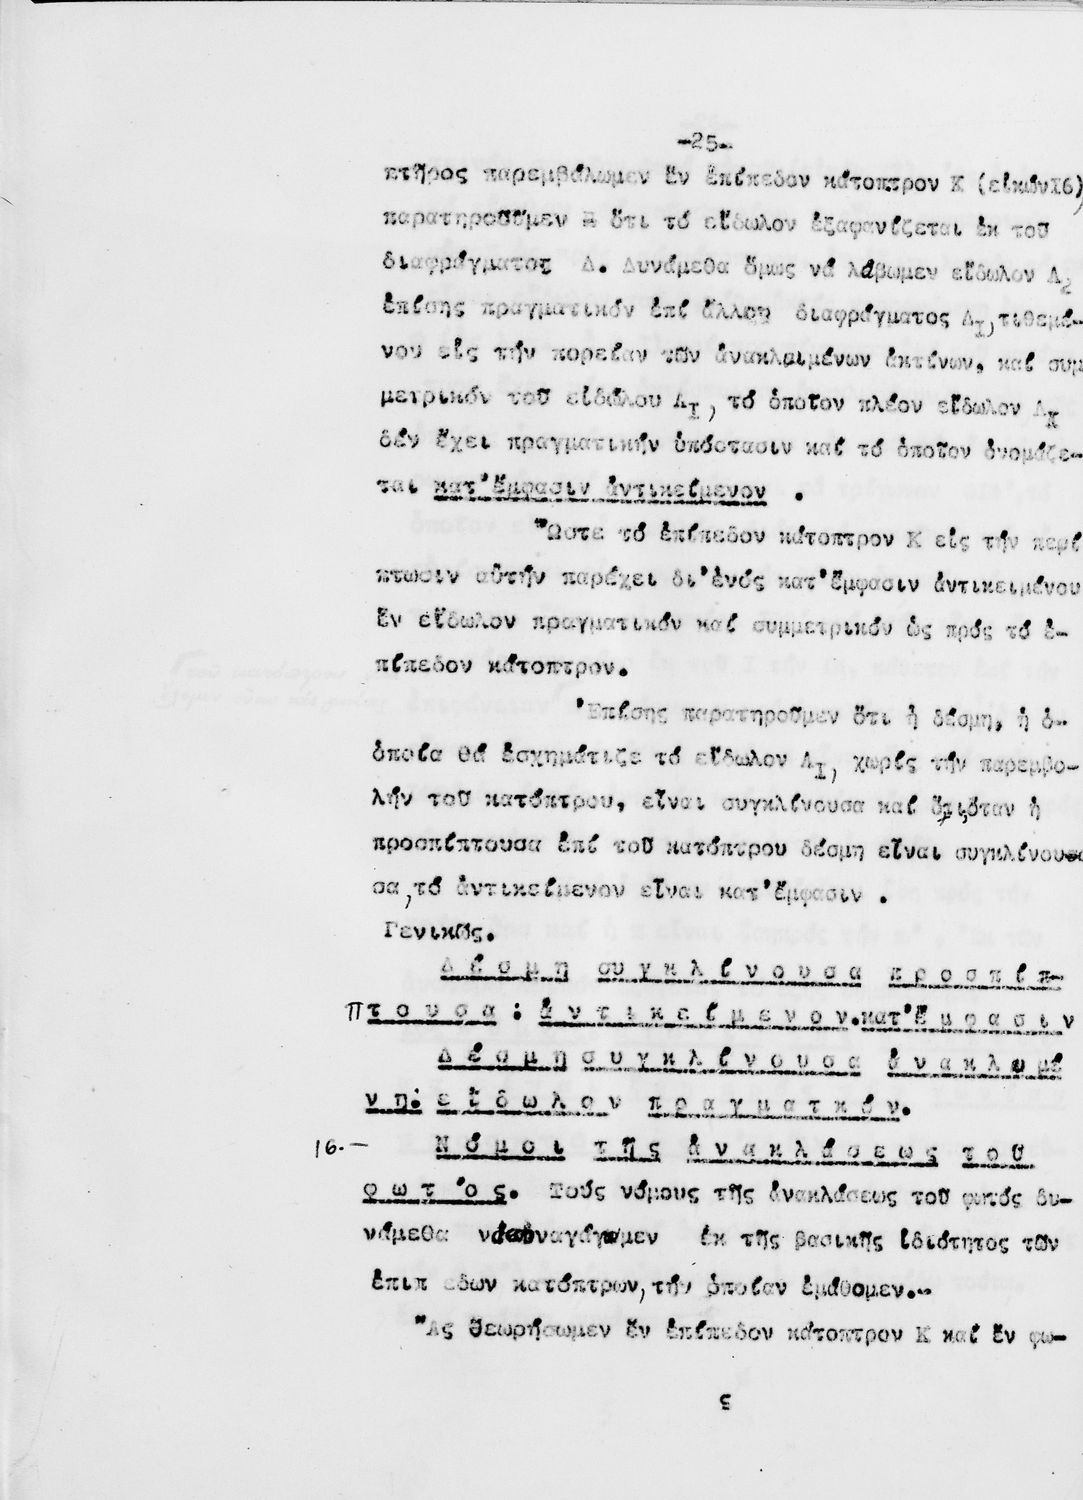 -25-
πτῆρος παρεμβάλωμεν ἕν ἐπίπεδον κάτοπτρον Κ (εἰκώνΙ6)
παρατηροῦμεν ὅτι τό εἴδωλον ἐξαφανίζεται ἐκ τοῦ
διαφράγματος Δ. Δυνάμεθα ὅμως νά λάβωμεν εἴδωλον Α2
ἐπίσης πραγματικόν ἐπί ἄλλου διαφράγματος ΔΙ,τιθεμέ-
νου εἰς τήν πορείαν τῶν ἀνακλωμένων ἀκτίνων, καί συμ
μετρικόν τοῦ εἰδώλου ΑΙ, τό ὁποῖον πλέον εἴδωλον ΑΙ
δέν ἔχει πραγματικήν ὑπόστασιν καί τό ὁποῖον ὀνομάζε-
ται κατ'ἔμφασιν ἀντικείμενον .
"Ωστε τό ἐπίπεδον κάτοπτρον Κ εἰς τήν περί
πτωσιν αὐτήν παρέχει δι'ἑνός κατ'ἔμφασιν ἀντικειμένου
ἕν εἴδωλον πραγματικόν καί συμμετρικόν ὡς πρός τό ἐ-
πίπεδον κάτοπτρον.
'Επίσης παρατηροῦμεν ὅτι ἡ δέσμη, ἡ ὁ-
ὁποία θά ἐσχημάτιζε τό εἴδωλον ΑΙ, χωρίς τήν παρεμβο-
λήν τοῦ κατόπτρου, εἶναι συγκλίνουσα καί ὅτι,ὅταν ἡ
προσπίπτουσα ἐπί τοῦ κατόπτρου δέσμη εἶναι συγκλίνου
σα,τό ἀντικείμενον εἶναι κατ'ἔμφασιν .
Γενικῶς.
Δ έ σ μ η συ γ κ λ ί ν ο υ σ α π ρ ο σ π ί π-
Π τ ο υ σ α : ἀ ν τ ι κ ε ί μ ε ν ο ν.κατ'ἔ μ φ α σ ι ν
Δ έ σ μ η σ υ γ κ λ ί ν ο υ σ α ἀ ν α κ λ ω μέ
ν η: ε ἴ δ ω λ ο ν π ρ α γ μ α τ κ ό ν.
16.- Ν ό μ ο ι τ ῆ ς ἀ ν α κ λ ά σ ε ω ς τ ο ῦ
φ ω τ 'ο ς. Τούς νόμους τῆς ἀνακλάσεως τοῦ φωτός δυ-
νάμεθα νά συναγάγωμεν ἐκ τῆς βασικῆς ἰδιότητος τῶν
ἐπιπ εδων κατόπτρων,τήν ὁποίαν ἐμάθομεν.-
"Ας θεωρήσωμεν ἕν ἐπίπεδον κάτοπτρον Κ καί ἕν φω-
ς